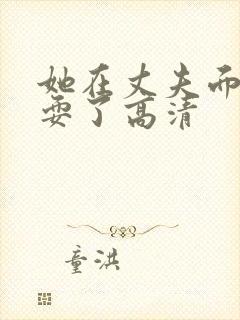 她在丈夫而
耍了高清
童洪